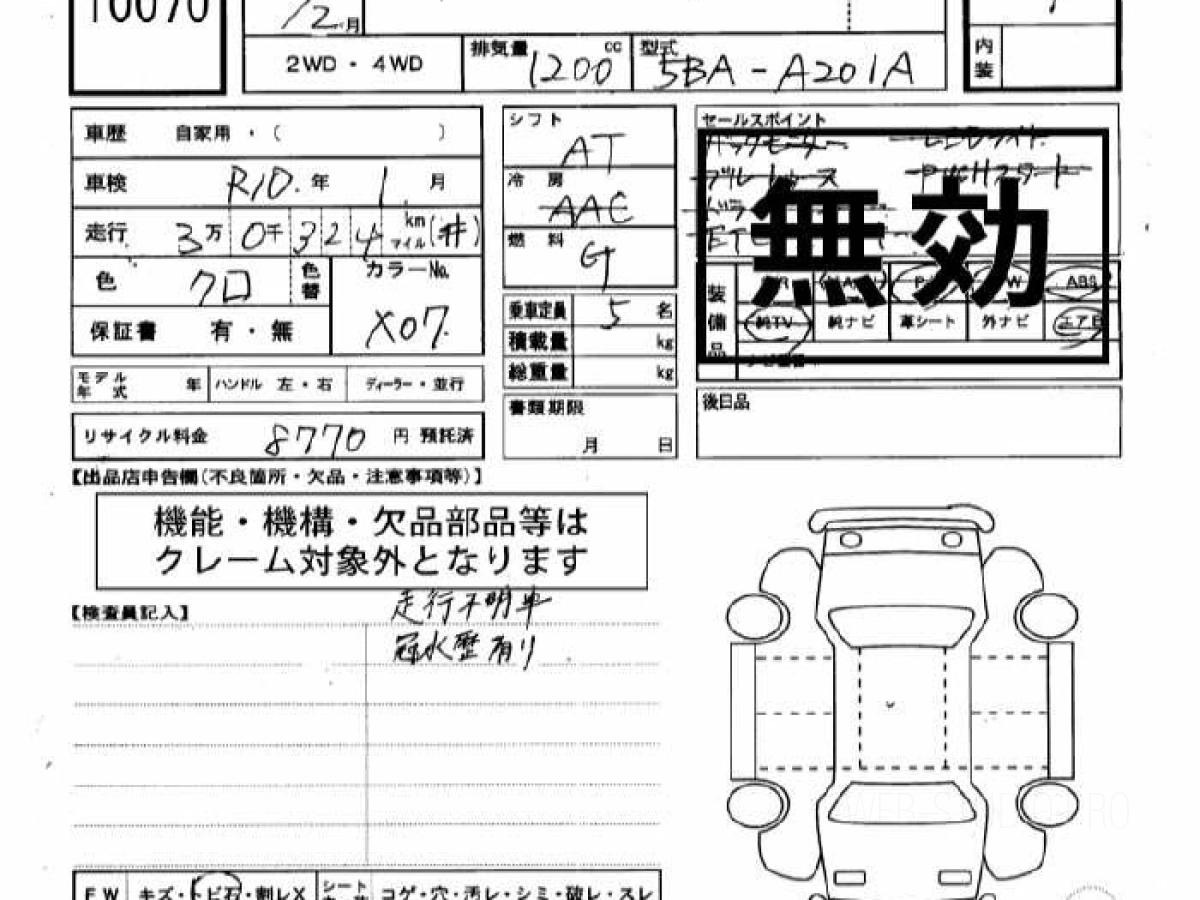 10070
12月
2WD・4WD 排気量 1200 cc 型式 5BA-A201A
内装
車歴 自家用・( )
車検 R10.年 1 月
走行 3万 0千 3 2 4 km マイル (#)
色 クロ 色替 カラーNo. X07.
保証書 有・無
モデル年式 年 ハンドル 左・右 ディーラー・並行
リサイクル料金 8770 円 預託済
シフト AT
冷房 AAC
燃料 G
乗車定員 5 名
積載量 kg
総重量 kg
書類期限 月 日
セールスポイント
バックモニター LEDライト
PUSHスタート
無効
装備品 ABS
純TV 純ナビ 革シート 外ナビ エアB
後日品
【出品店申告欄(不良箇所・欠品・注意事項等)】
機能・機構・欠品部品等は
クレーム対象外となります
【検査員記入】
走行不明車
冠水歴有り
FW キズ・トビ石・割レX シート コゲ・穴・汚レ・シミ・破レ・スレ